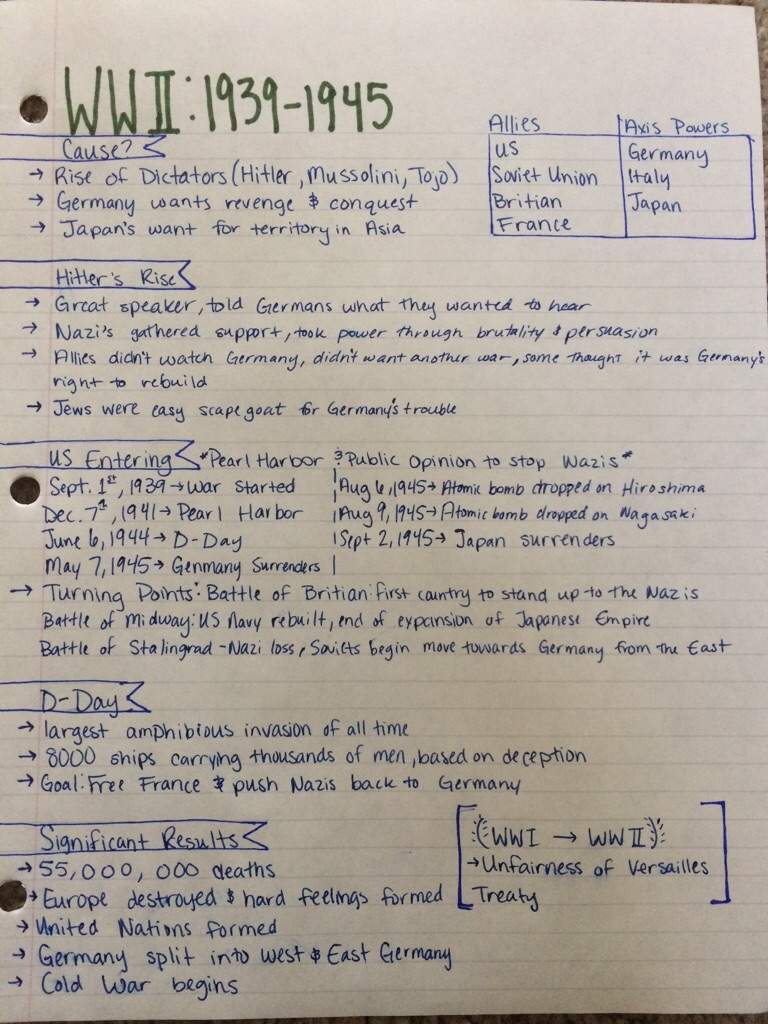 WWII: 1939-1945
Cause?
→ Rise of Dictators (Hitler, Mussolini, Tojo)
→ Germany wants revenge & conquest
→ Japan's want for territory in Asia
Allies | Axis Powers
US | Germany
Soviet Union | Italy
Britian | Japan
France
Hitler's Rise
→ Great speaker, told Germans what they wanted to hear
→ Nazi's gathered support, took power through brutality & persuasion
→ Allies didn't watch Germany, didn't want another war, some thought it was Germany's
right to rebuild
→ Jews were easy scapegoat for Germany's trouble
US Entering *Pearl Harbor & Public Opinion to stop Nazis*
Sept. 1st, 1939 → War started
Dec. 7th, 1941 → Pearl Harbor
June 6, 1944 → D-Day
May 7, 1945 → Germany Surrenders
Aug 6, 1945 → Atomic bomb dropped on Hiroshima
Aug 9, 1945 → Atomic bomb dropped on Nagasaki
Sept 2, 1945 → Japan surrenders
→ Turning Points: Battle of Britian: first country to stand up to the Nazis
Battle of Midway: US Navy rebuilt, end of expansion of Japanese Empire
Battle of Stalingrad - Nazi loss, Soviets begin move towards Germany from the East
D-Day
→ largest amphibious invasion of all time
→ 8000 ships carrying thousands of men, based on deception
→ Goal: Free France & push Nazis back to Germany
Significant Results
→ 55,000,000 deaths
→ Europe destroyed & hard feelings formed
→ United Nations formed
→ Germany split into West & East Germany
→ Cold War begins
(WWI → WWII)
→ Unfairness of Versailles
Treaty